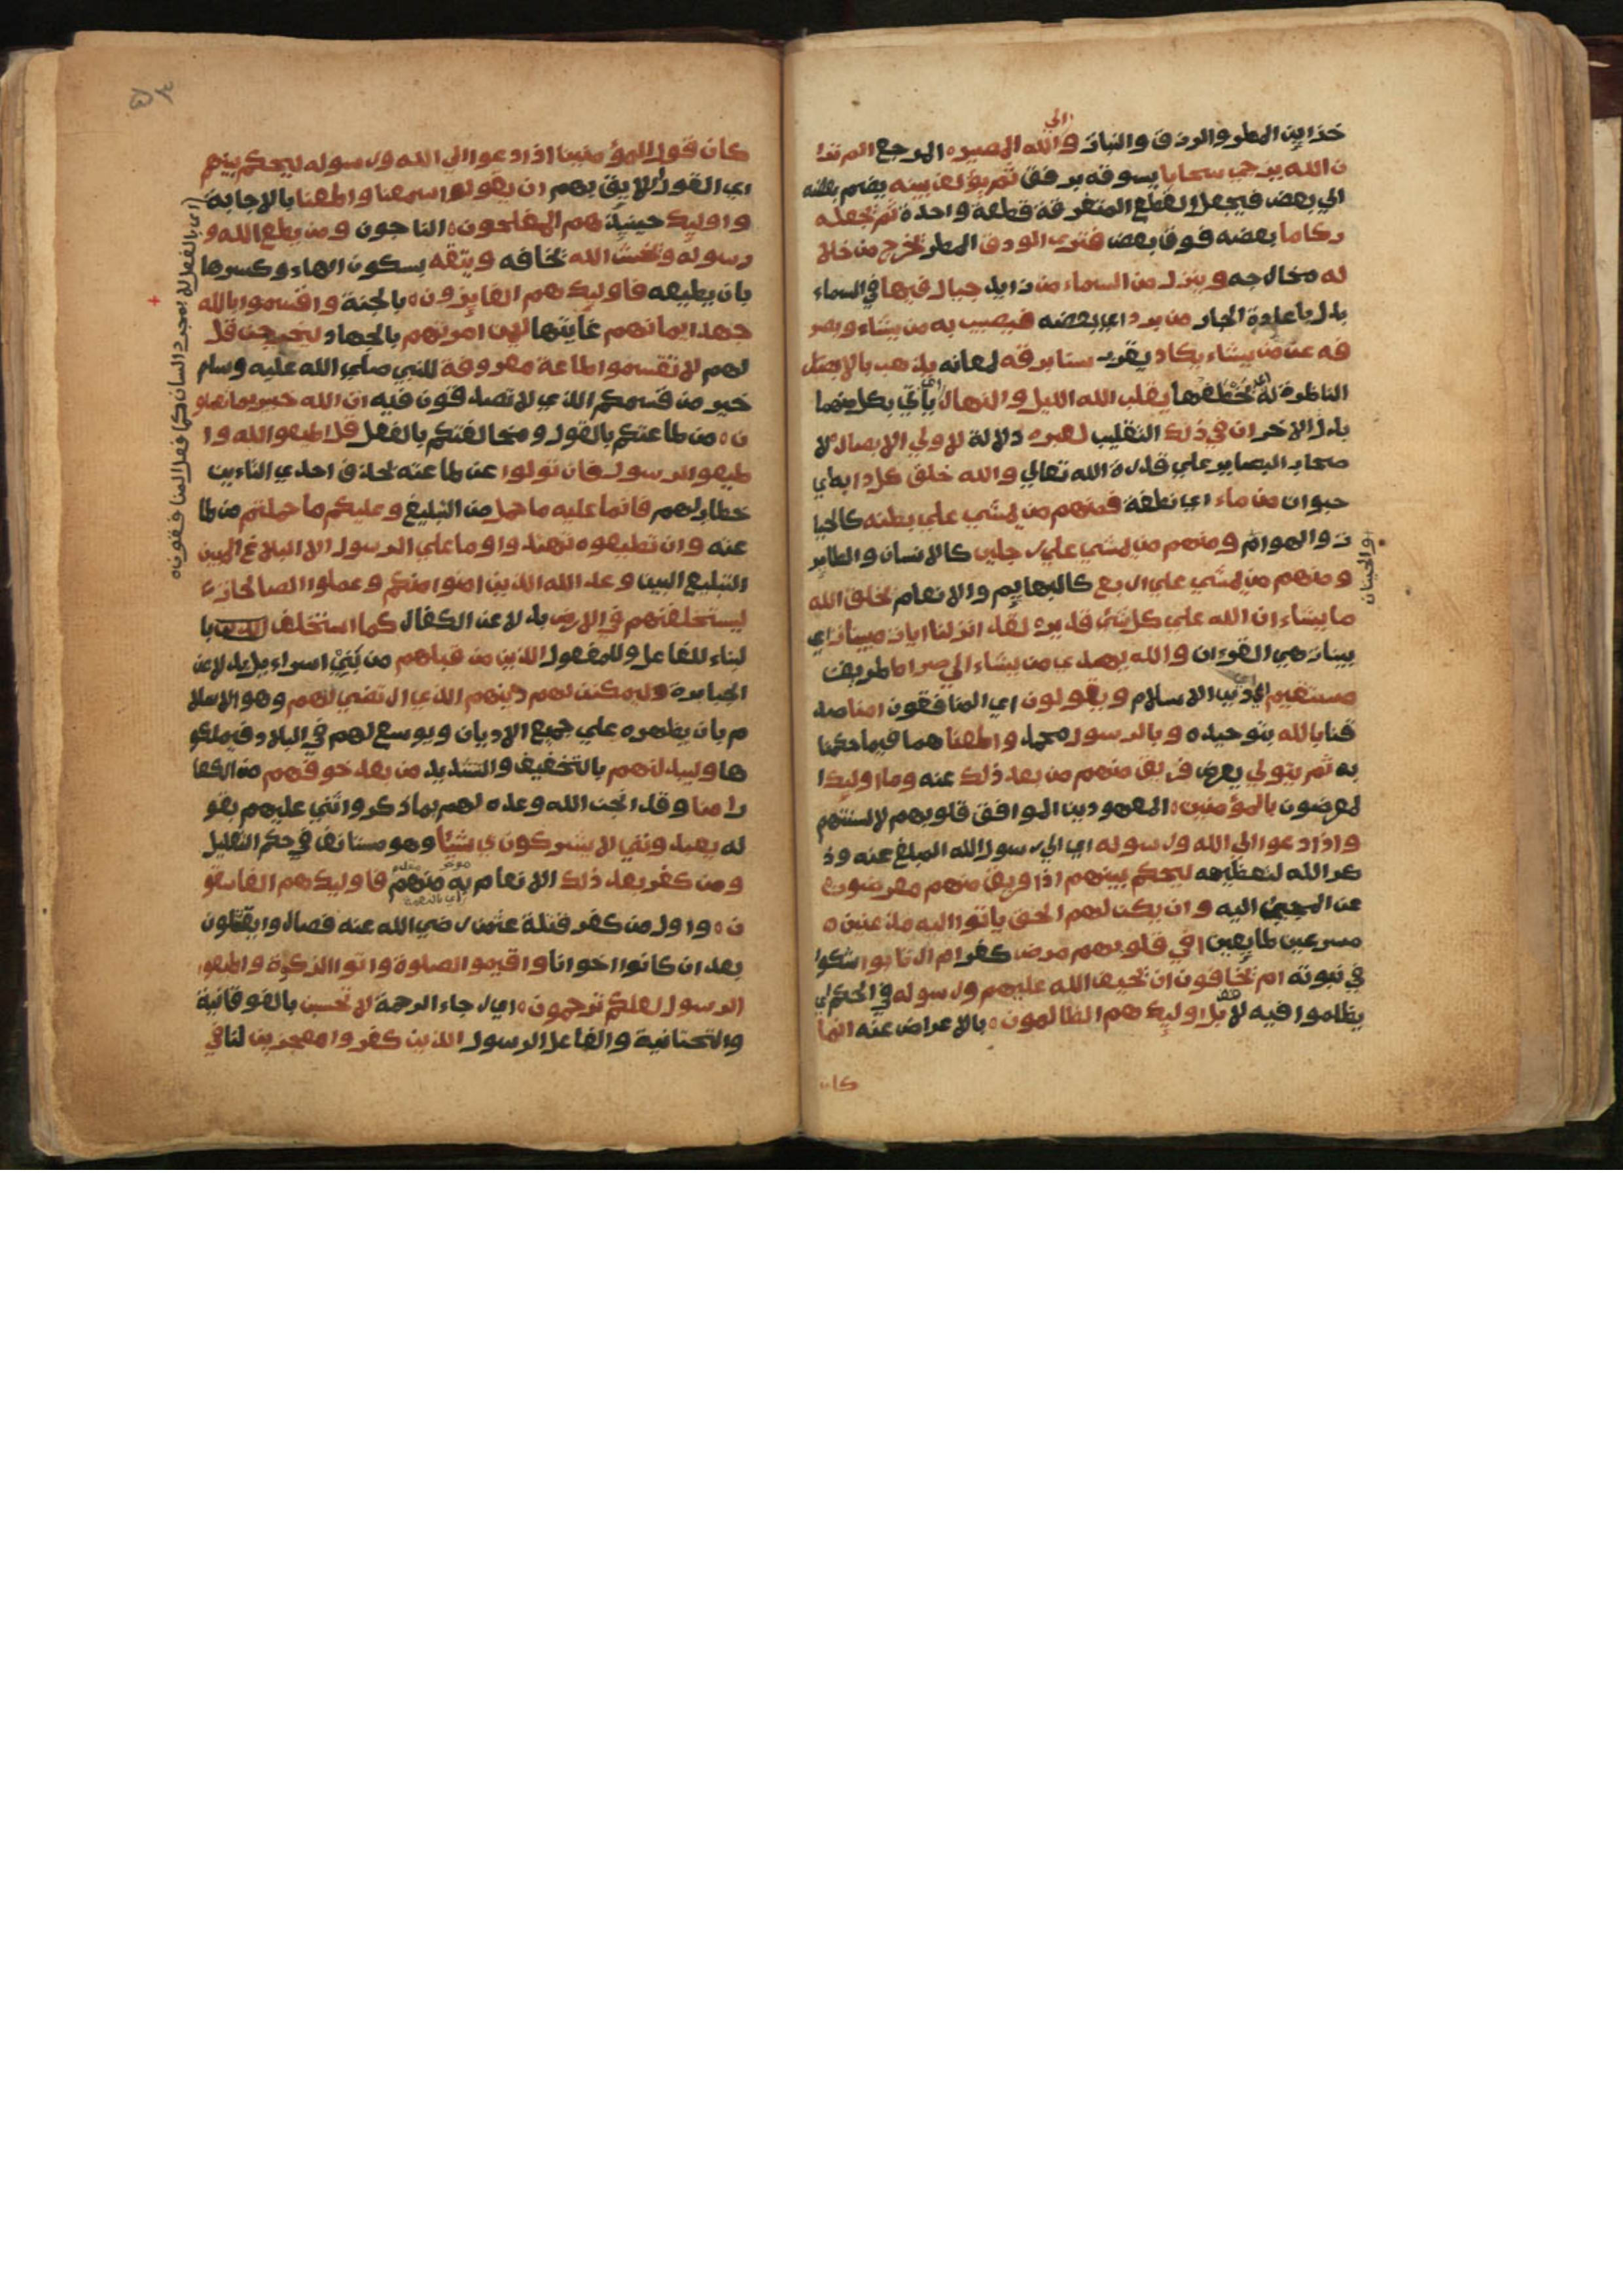 خزاين المطر والرزق والنبات والي الله المصيره المرجع الم ترا
ن الله يزجي سحابا يسوقه برفق ثم يؤلف بينه يضم بعضه
الي بعض فيجعل القطع المتفرقة قطعة واحدة ثم يجعله
ركاما بعضه فوق بعض فتري الودق المطر يخرج من خلا
له مخارجه وينزل من السماء من زايد جبال فيها في السماء
بدل باعادة الجار من برد اي بعضه فيصيب به من يشاء ويصر
فه عن من يشاء يكاد يقرب سنا برقه لمعانه يذهب بالابصار
الناظرة له اي يخطفها يقلب الله الليل والنهار اي يأتي بكل منهما
بدل الاخر ان في ذلك التقليب لعبره دلالة لاولي الابصار لا
صحاب البصاير علي قدرة الله تعالي والله خلق كل دابه اي
حيوان من ماء اي نطفة فمنهم من يمشي علي بطنه كالحيا
ت والهوام ومنهم من يمشي علي رجلين كالانسان والطاير
والحيتان
ومنهم من يمشي علي اربع كالبهايم والانعام يخلق الله
ما يشاء ان الله علي كل شئ قديره لقد انزلنا ايات مبينات اي
بينات هي القرءان والله يهدي من يشاء الي صراط طريف
مستقيم اي دين الاسلام ويقولون اي المنافقون امنا صد
قنا بالله بتوحيده وبالرسول محمد واطعنا هما فيما حكما
به ثم يتولي يعرض فريق منهم من بعد ذلك عنه وما اوليكا
لمعرضون بالمؤمنين المعهودين الموافق قلوبهم لالسنتهم
واذا دعوا الي الله ورسوله اي الي رسول الله المبلغ عنه وذ
كر الله لتعظيمه ليحكم بينهم اذا فريق منهم معرضون
عن المجئ اليه وان يكن لهم الحق ياتوا اليه مذعنين ه
مسرعين طايعين افي قلوبهم مرض كفر ام ارتابوا شكوا
في نبوته ام يخافون ان يحيف الله عليهم ورسوله في الحكم اي
يظلموا فيه لا بل اوليك هم الظالمون ه بالاعراض عنه انما
كان
كان قول المؤمنين اذا دعوا الي الله ورسوله ليحكم بينهم
اي القول الايق بهم ان يقولوا سمعنا واطعنا بالاجابة
واوليك حينيذ هم المفلحون ه الناجون ومن يطع الله و
رسوله ويخش الله يخافه ويتقه بسكون الهاء وكسرها
بان يطيعه فاوليك هم الفايزون ه بالجنة واقسموا بالله
جهد ايمانهم غايتها لين امرتهم بالجهاد ليخرجن قل
لهم لا تقسموا طاعة معروفة للنبي صلي الله عليه وسلم
خير من قسمكم الذي لا تصدقون فيه ان الله خبير بما تعملو
ن ه من طاعتكم بالقول ومخالفتكم بالفعل قل اطيعوا الله وا
اي بالفعل لا بمجرد السان كما فعل المنافقون ه
طيعوا الرسول فان تولوا عن طاعته بحذف احدي التاءين
خطاب لهم فانما عليه ما حمل من التبليغ وعليكم ما حملتم من طا
عته وان تطيعوه تهتدوا وما علي الرسول الا البلاغ المبين
التبليغ البين وعد الله الذين امنوا منكم وعملوا الصالحات
ليستخلفنهم في الارض بدلا عن الكفار كما استخلف با
لبناء للفاعل وللمفعول الذين من قبلهم من بني اسراءيل بدلا عن
الجبابرة وليمكنن لهم دينهم الذي ارتضي لهم وهو الاسلا
م بان يظهره علي جميع الاديان ويوسع لهم في البلاد فيملكو
ها وليبدلنهم بالتخفيف والتشديد من بعد خوفهم من الكفا
ر امنا وقد انجز الله وعده لهم بما ذكر واثني عليهم بقو
له يعبدونني لا يشركون بي شيئا وهو مستانف في حكم التعليل
ومن كفر بعد ذلك الانعام به منهم فاوليك هم الفاسقو
ن ه واول من كفر قتلة عثمن رضي الله عنه فصاروا يقتتلون
بعد ان كانوا اخوانا واقيموا الصلوة واتوا الزكوة واطيعوا
الرسول لعلكم ترحمون ه اي رجاء الرحمة لا تحسبن بالفوقانية
والتحتانية والفاعل الرسول الذين كفروا معجزين لنا في